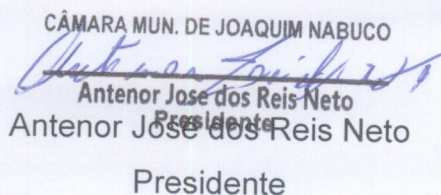 CÂMARA MUN. DE JOAQUIM NABUCO
Antenor José dos Reis Neto
Presidente
Antenor José dos Reis Neto
Presidente